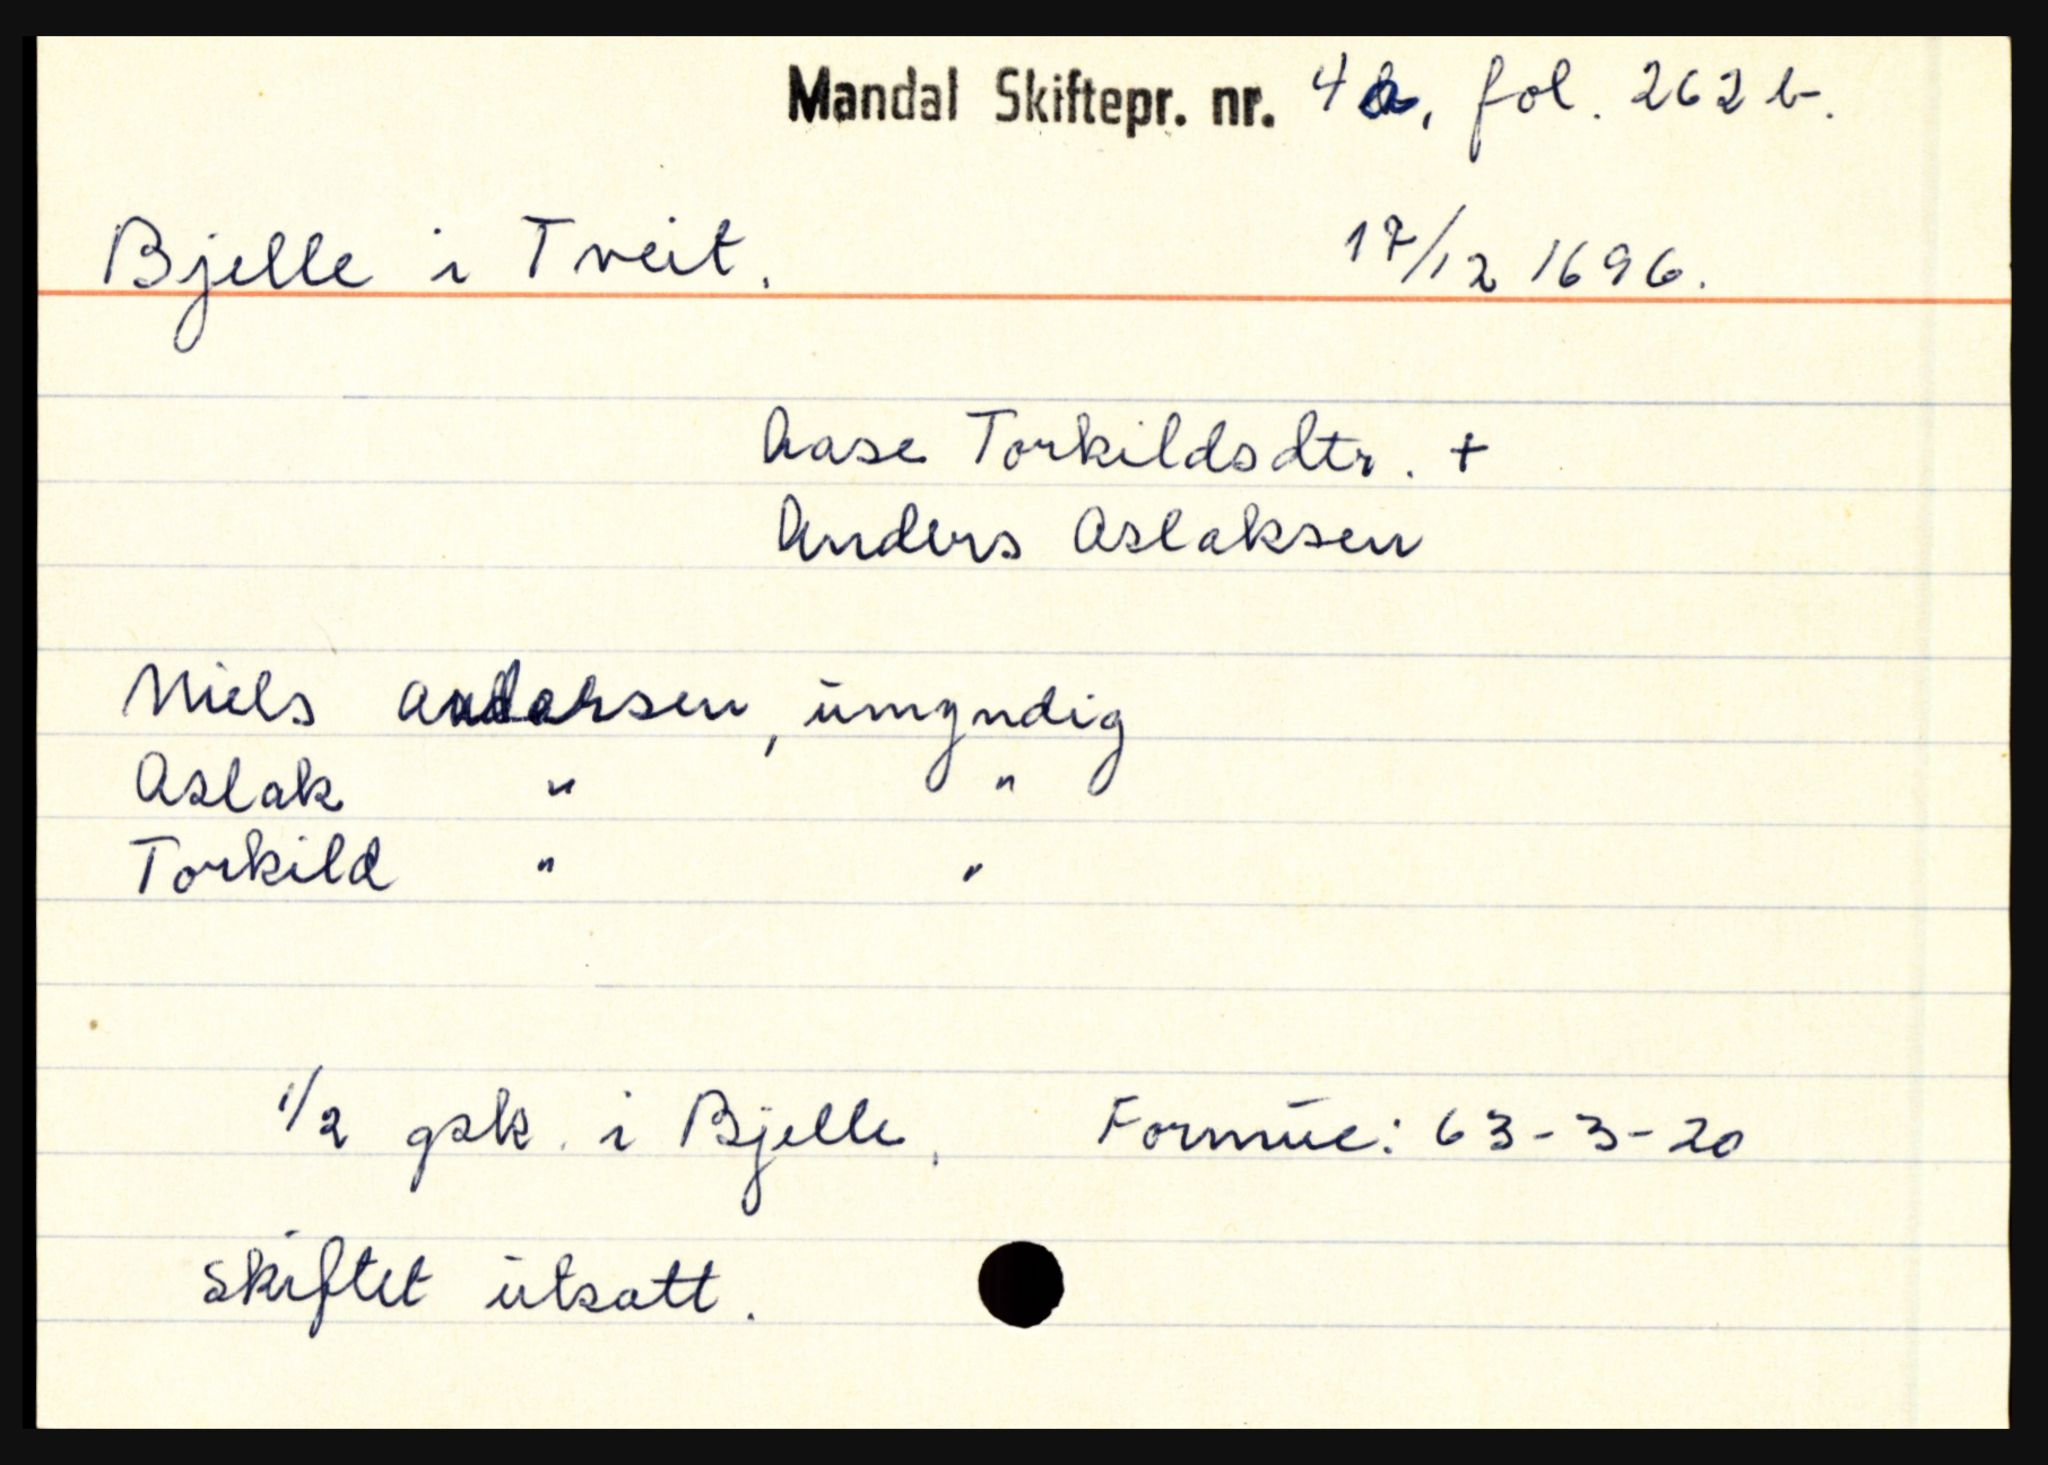 Mandal Skiftepr. nr. 4a, fol. 262 b.
Bjelle i Tveit. 17/12 1696.
Aase Torkildsdtr. +
Anders Aslaksen
Niels Andersen, umyndig
Aslak " "
Torkild " "
1/2 gsk. i Bjelle. Formue: 63-3-20
Skiftet utsatt.